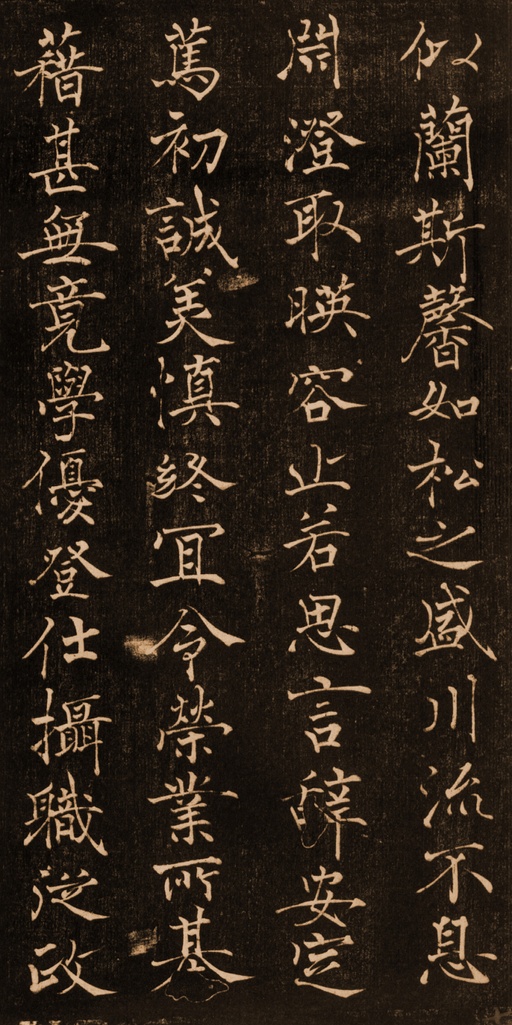 似蘭斯馨如松之盛川流不息
淵澄取暎容止若思言辭安定
篤初誠美慎終冝令榮業所基
藉甚無竟學優登仕攝職從政